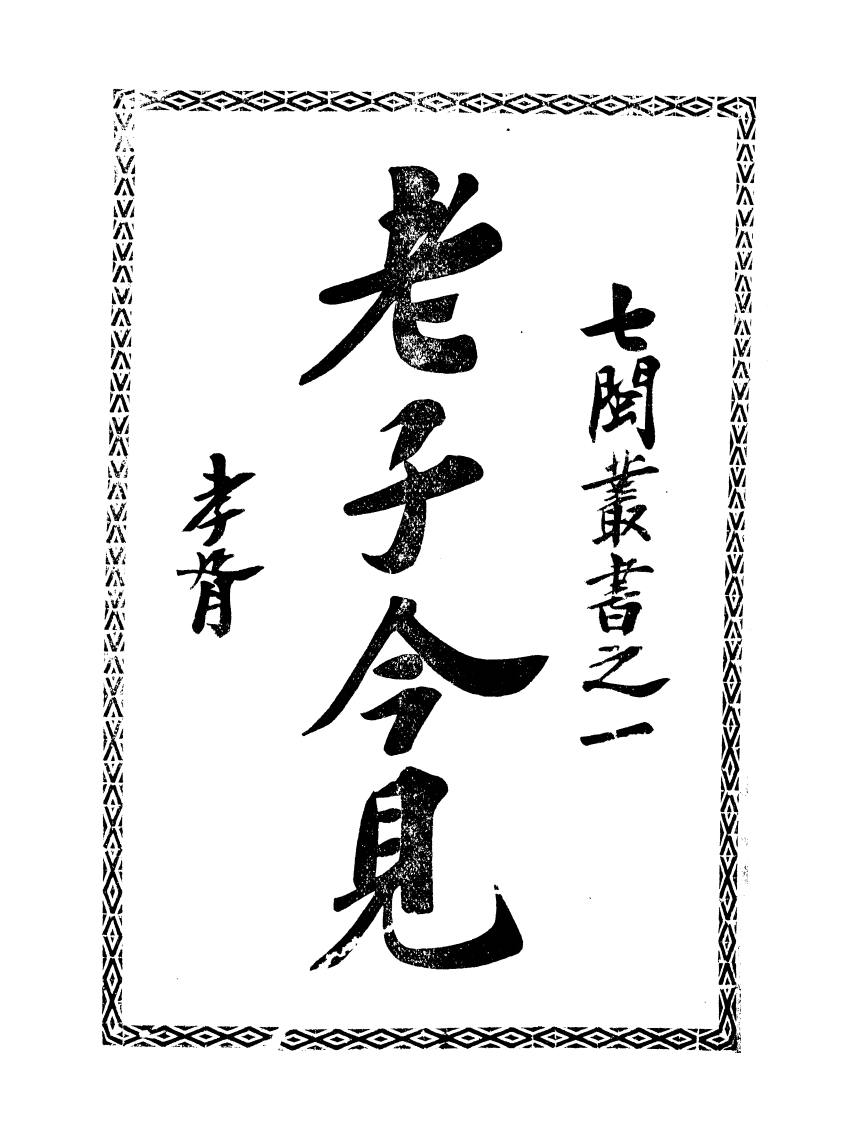 七閩叢書之一
老子今見
孝胥